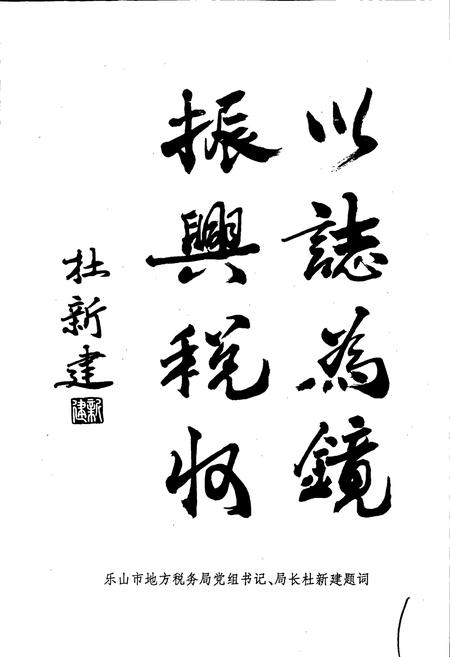 以誌為鏡
振興税收
杜新建
新建
乐山市地方税务局党组书记、局长杜新建题词